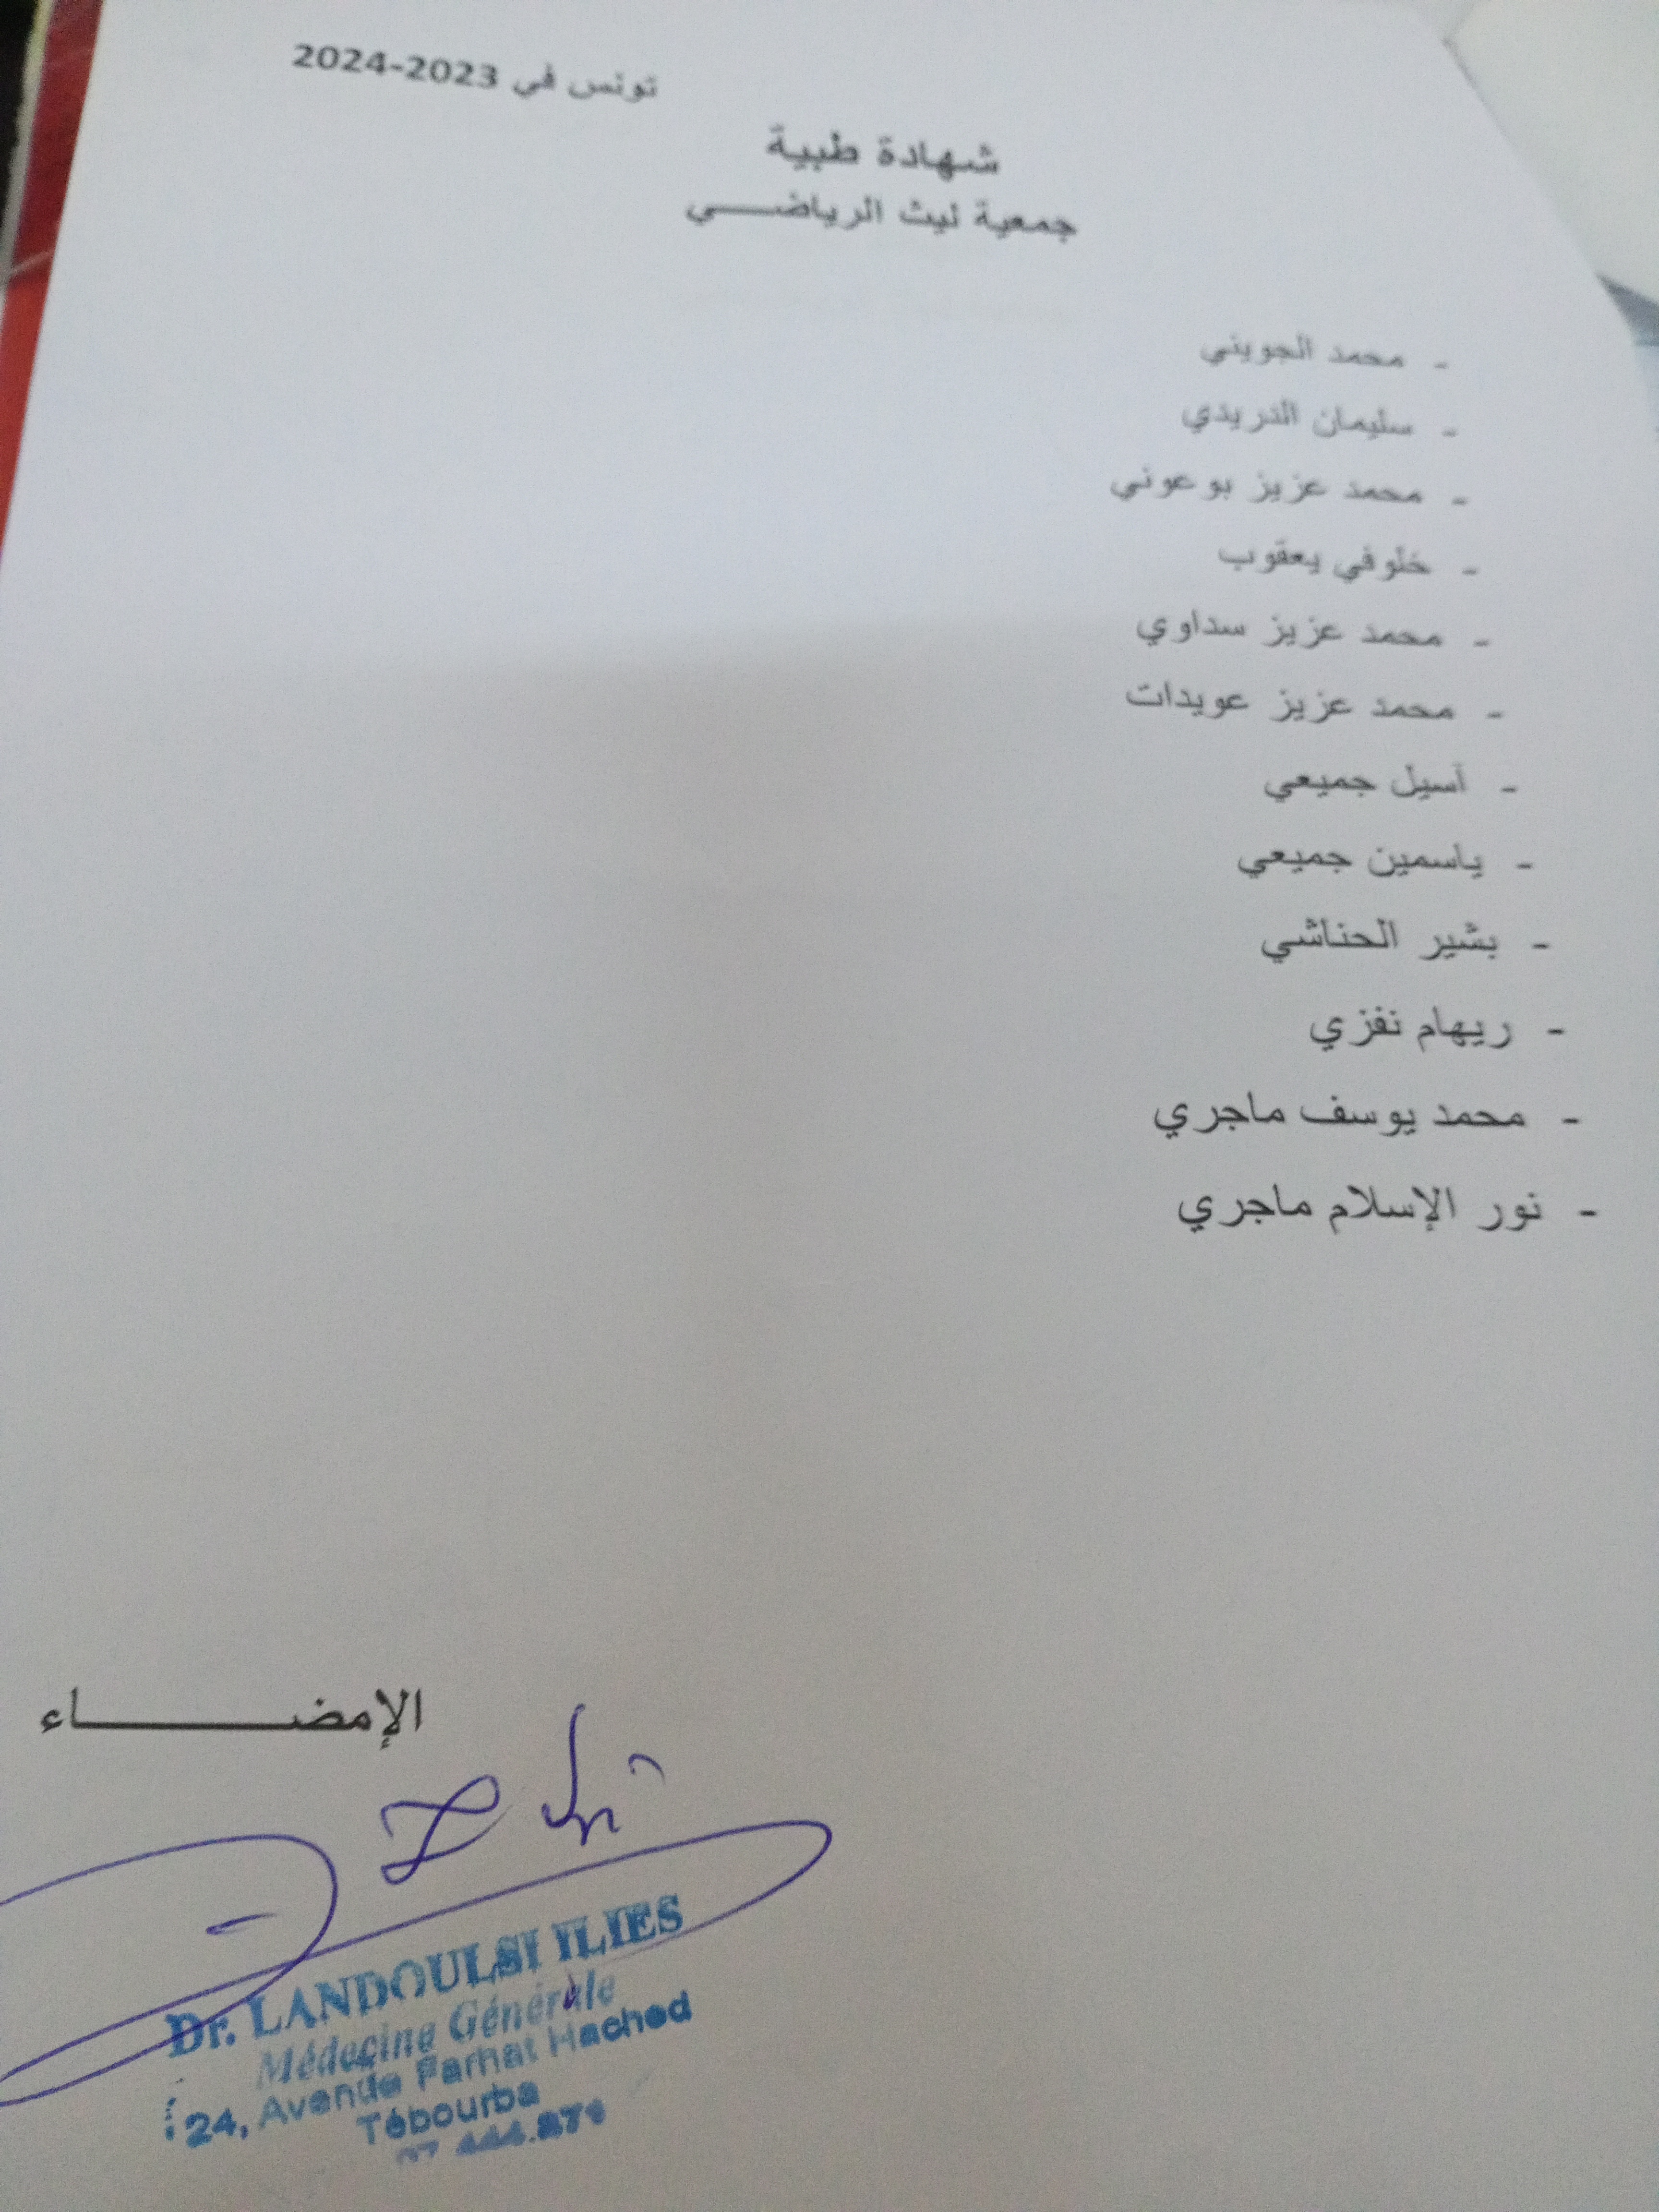 تونس في 2023-2024
شهادة طبية
جمعية ليث الرياضـــــي
- محمد الجويني
- سليمان الدريدي
- محمد عزيز بوعوني
- خلوفي يعقوب
- محمد عزيز سداوي
- محمد عزيز عويدات
- آسيل جميعي
- ياسمين جميعي
- بشير الحناشي
- ريهام نفزي
- محمد يوسف ماجري
- نور الإسلام ماجري
الإمضــــــــــــاء
Dr. LANDOULSI ILIES
Médecine Générale
24, Avenue Farhat Hached
Tébourba